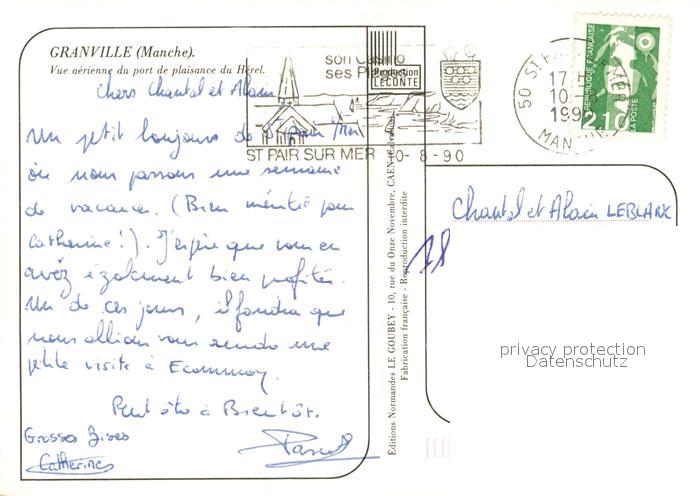 GRANVILLE (Manche).
Vue aérienne du port de plaisance du Hérel.
son Casino
ses Pl
Production
LECONTE
ST PAIR SUR MER 10-8-90
50 ST PAIR MER
17 H
10-
199
MAN
RÉPUBLIQUE FRANÇAISE
2,10
LA POSTE
Chers Chantal et Alain
Un petit bonjour de St Pair/Mer
où nous passons une semaine
de vacance. (Bien méritée pour
Catherine!). J'espère que vous en
avez également bien profités.
Un de ces jours, il faudra que
nous allions vous rendre une
petite visite à Ecommoy.
Peut être à Bientôt.
Grosses Bises
Catherine
Pascal
Éditions Normandes LE GOUBEY - 10, rue du Onze Novembre, CAEN (Calvados)
Fabrication française - Reproduction interdite
Chantal et Alain LEBLANC
privacy protection
Datenschutz